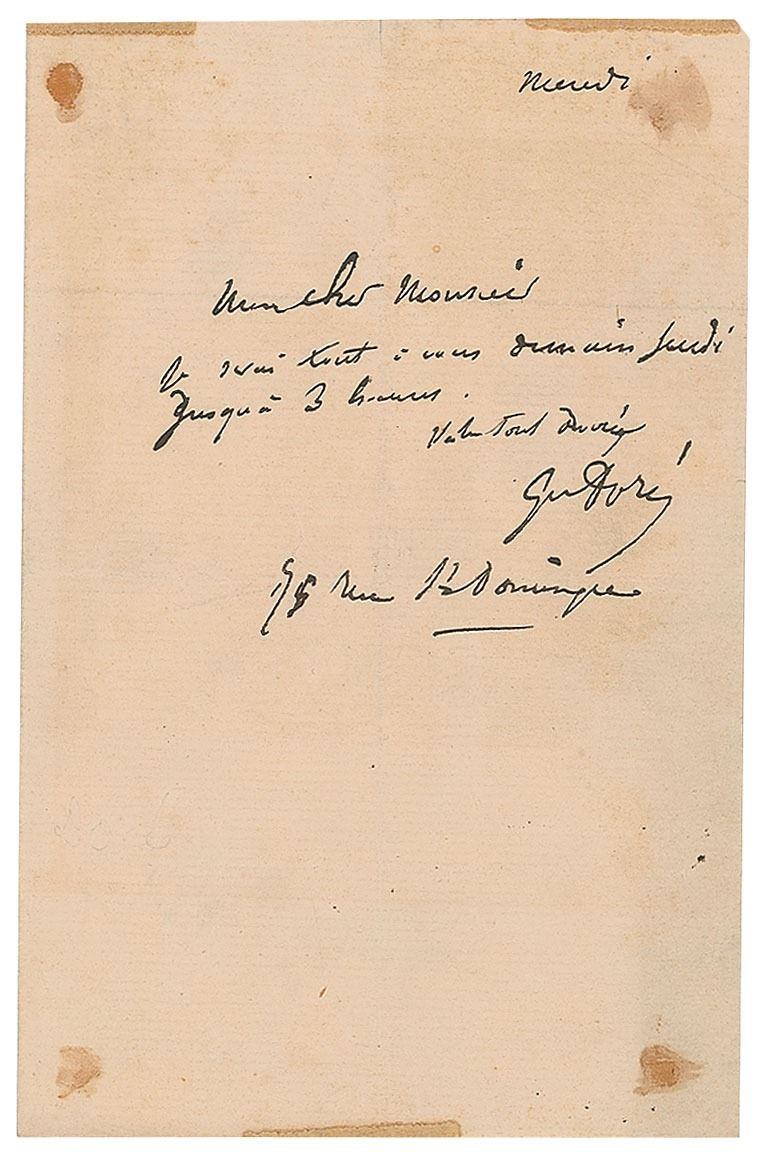 Mercredi
Mon cher Monsieur
Je serai tout à vous demain jeudi
jusqu'à 3 heures.
Votre tout dévoué
Gve Doré
rue St Dominique